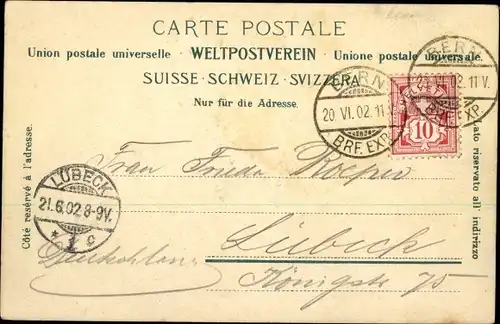 CARTE POSTALE
Union postale universelle · WELTPOSTVEREIN · Unione postale universale
SUISSE · SCHWEIZ · SVIZZERA
Nur für die Adresse.
BERN
20 VI. 02. 11
BRF. EXP.
BERN
02. 11 V.
10
Côté reservé à l'adresse.
Lato riservato all' indirizzo
LÜBECK
21.6.02. 8-9V.
* 1 c
Frau Frieda
Lübeck
Deutschland
Königstr 75